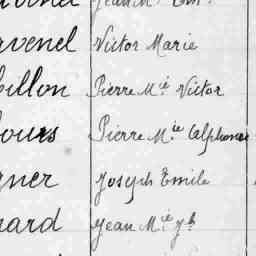 venel Victor Marie
billon Pierre M.ie Victor
Pierre M.ie Alphonse
gner Joseph Emile
nard Jean M.ie Jh